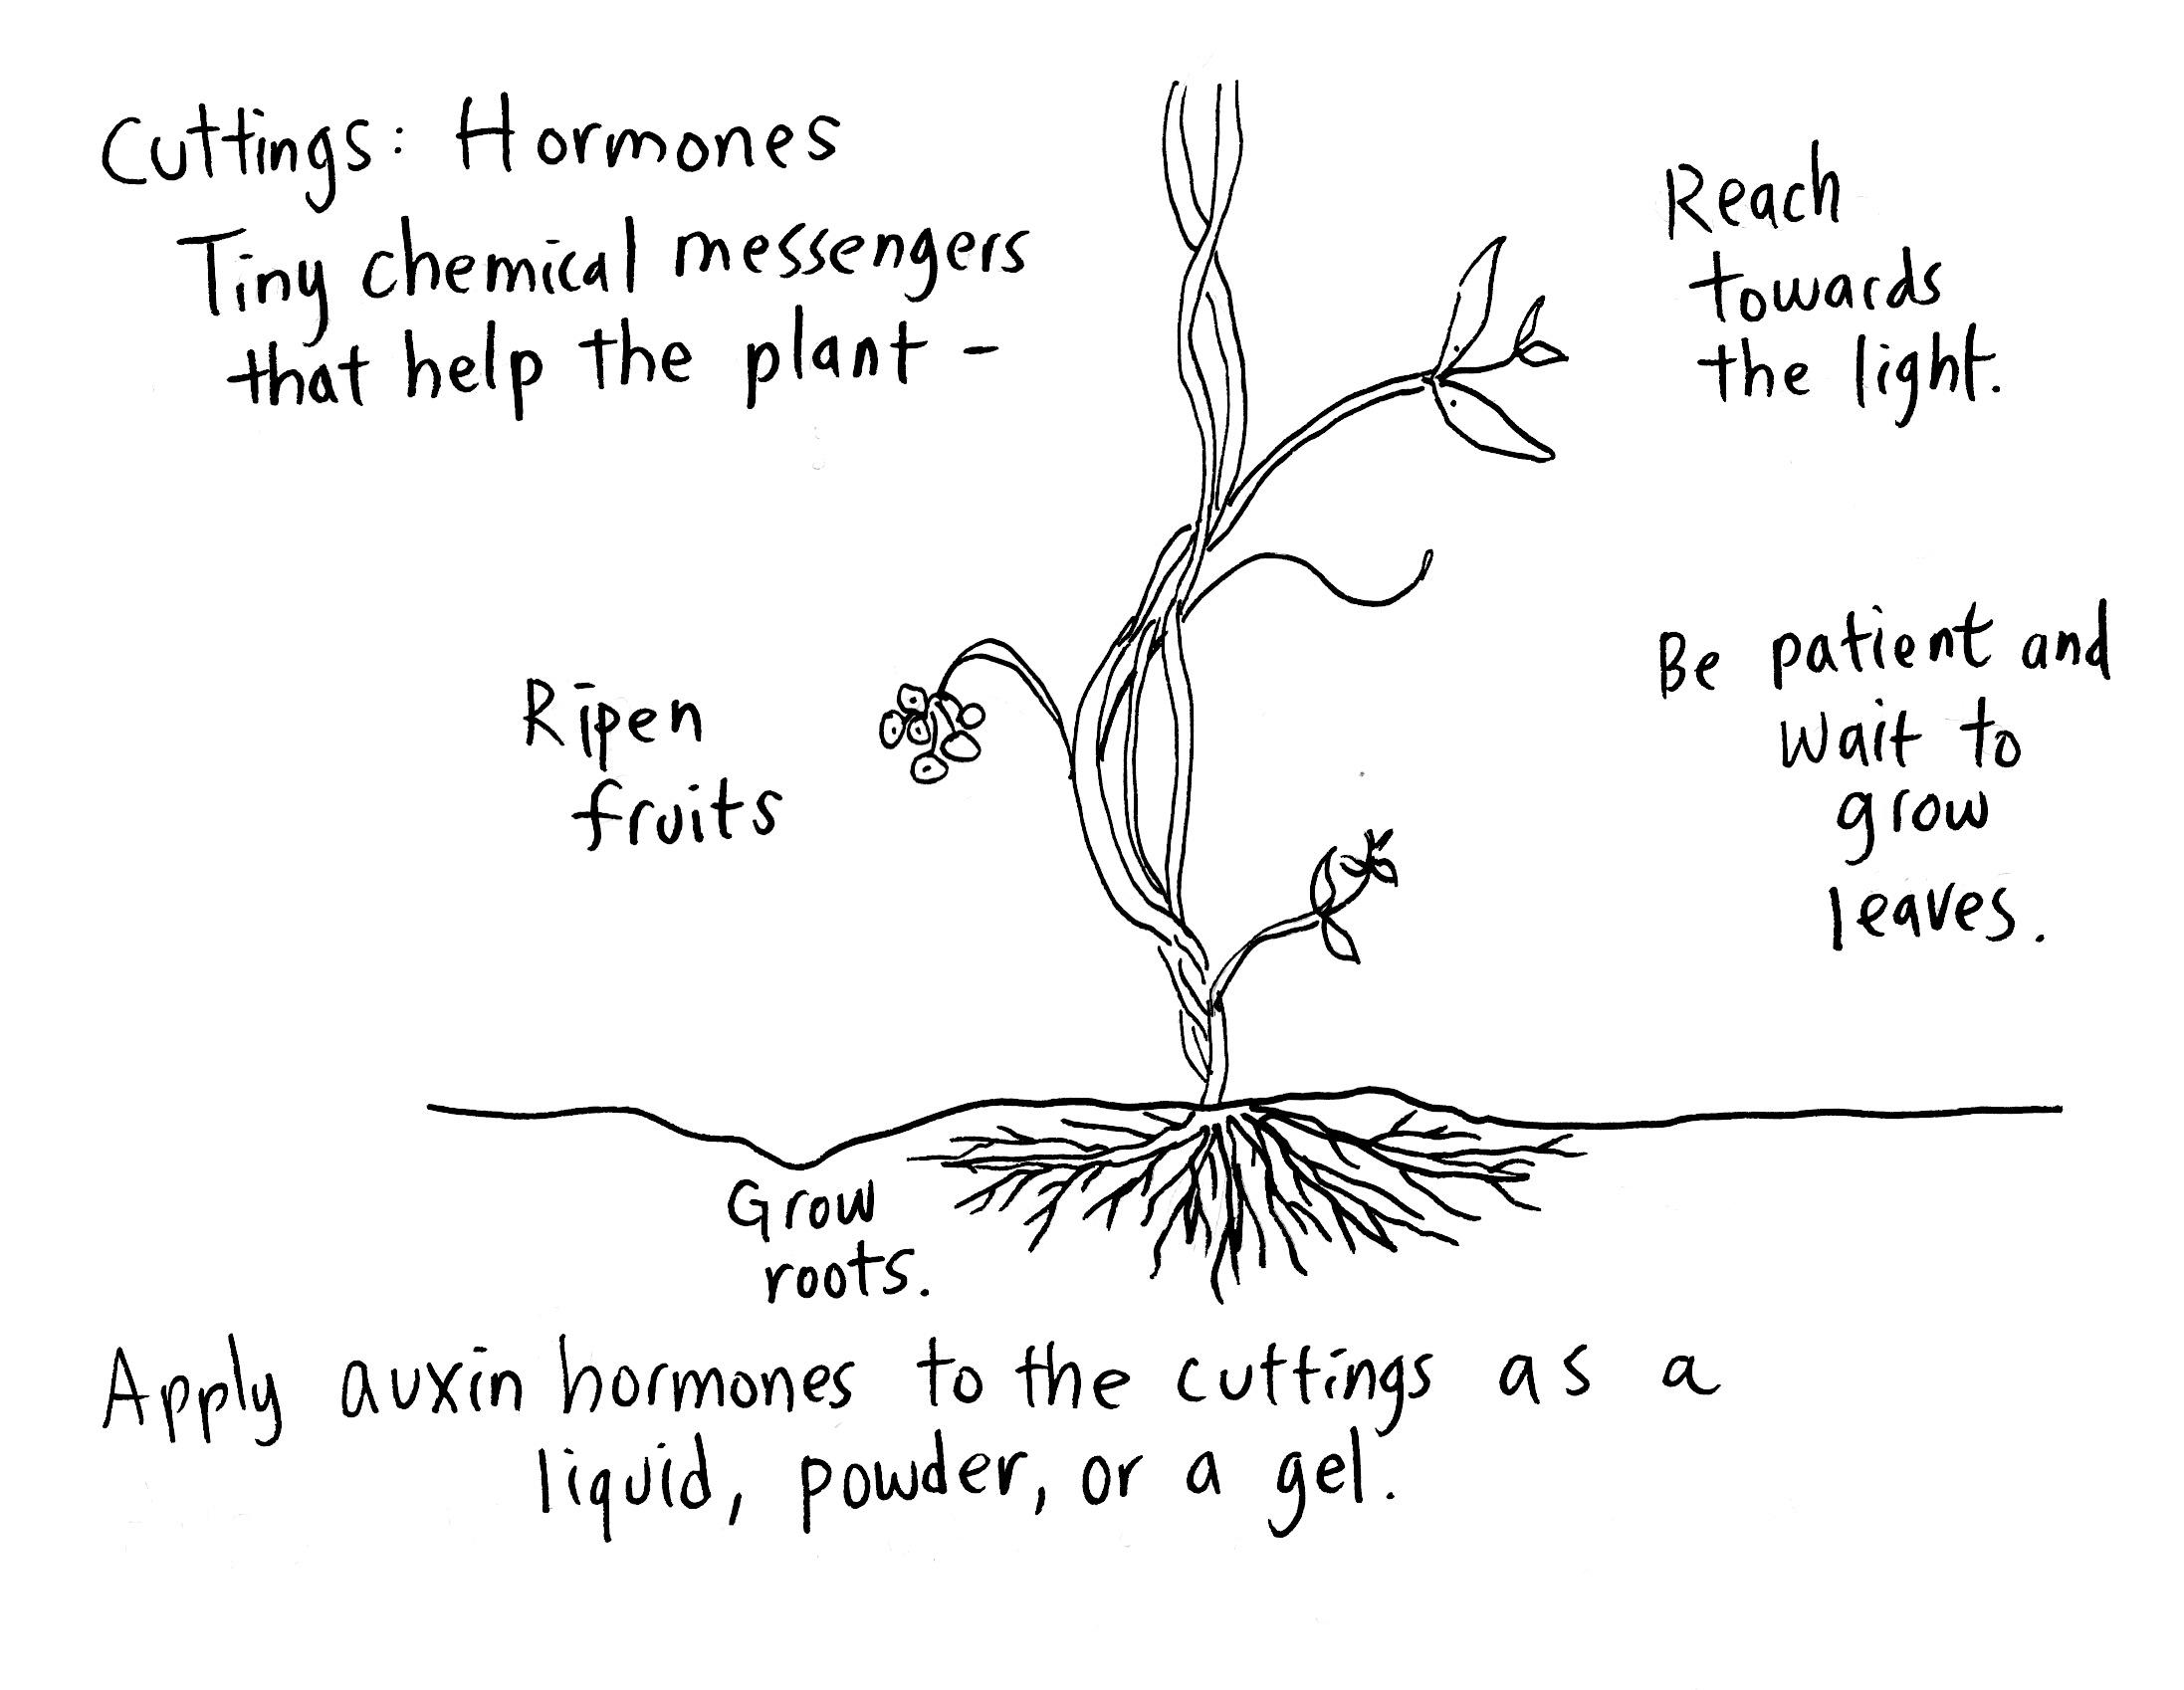 Cuttings: Hormones
Tiny chemical messengers
that help the plant -
Reach
towards
the light.
Ripen
fruits
Be patient and
wait to
grow
leaves.
Grow
roots.
Apply auxin hormones to the cuttings as a
liquid, powder, or a gel.